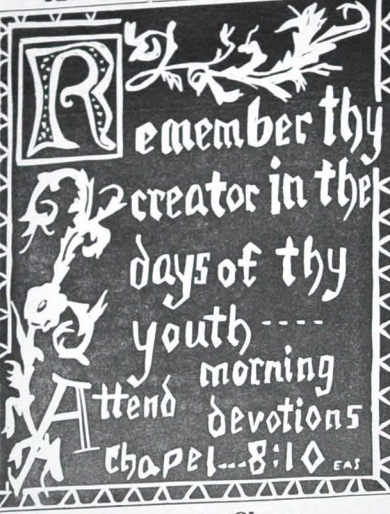 Remember thy
creator in the
days of thy
youth ----
morning
Attend devotions
Chapel...8:10 EAS